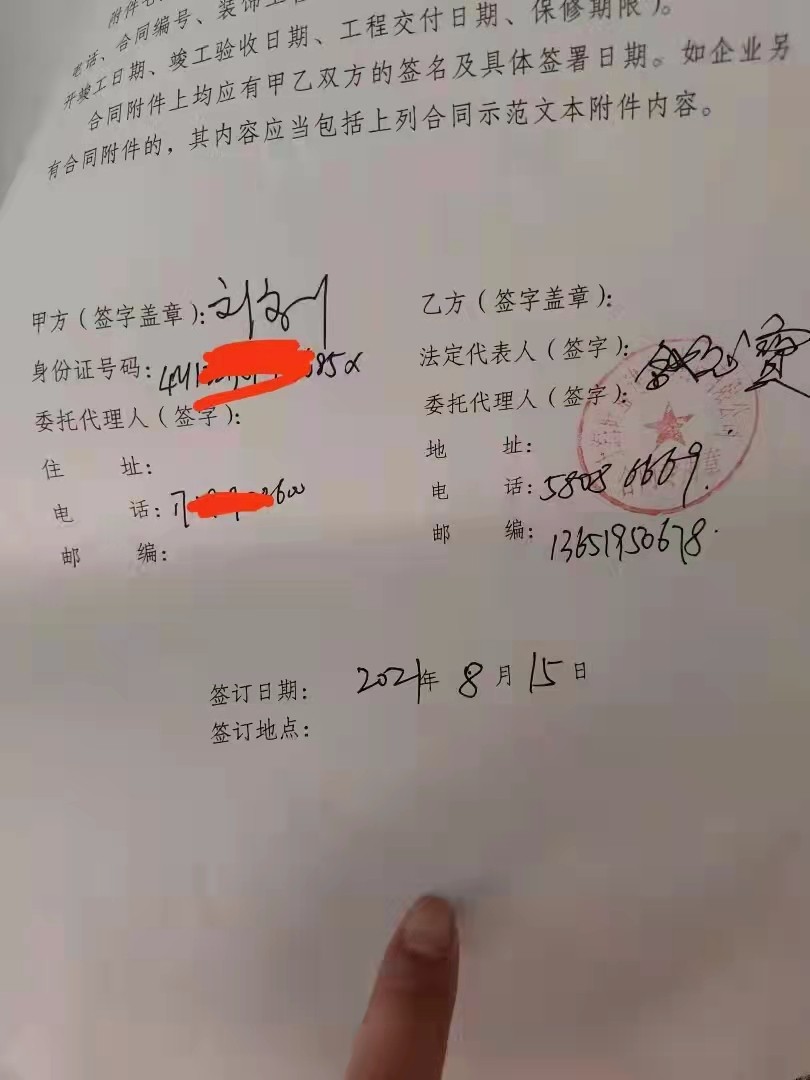 附件
电话、合同编号、装饰工
开竣工日期、竣工验收日期、工程交付日期、保修期限）。
合同附件上均应有甲乙双方的签名及具体签署日期。如企业另
有合同附件的，其内容应当包括上列合同示范文本附件内容。
甲方（签字盖章）：
身份证号码：
委托代理人（签字）：
住 址：
电 话：
邮 编：
乙方（签字盖章）：
法定代表人（签字）：
委托代理人（签字）：
地 址：
电 话：58086669
邮 编：13651950678
签订日期：2021年8月15日
签订地点：